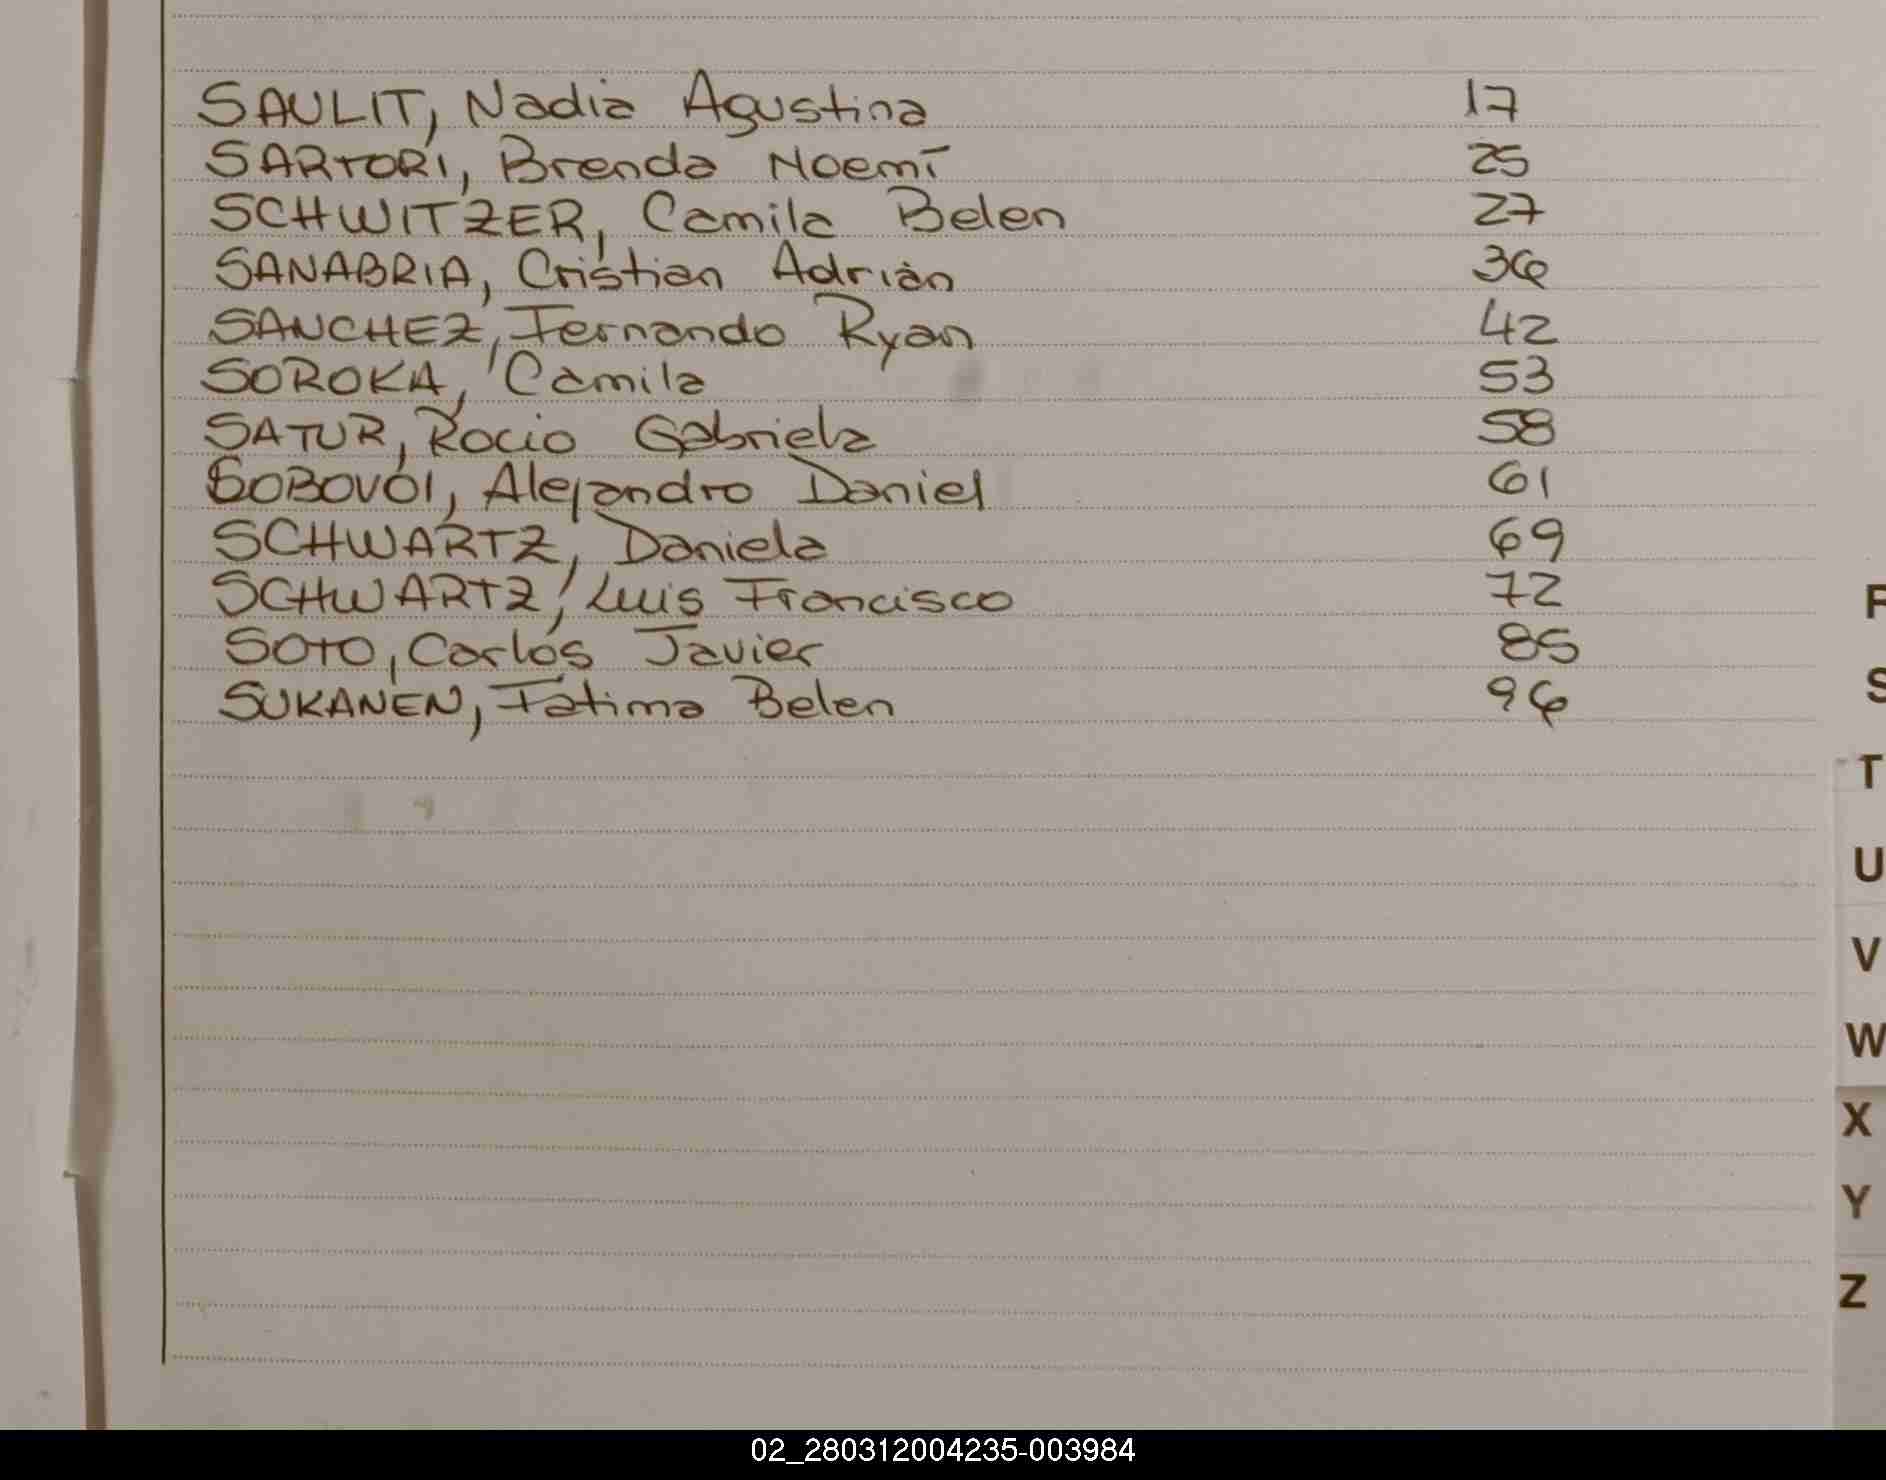 SAULIT, Nadia Agustina 17
SARTORI, Brenda Noemí 25
SCHWITZER, Camila Belen 27
SANABRIA, Cristian Adrián 36
SANCHEZ, Fernando Ryan 42
SOROKA, Camila 53
SATUR, Rocio Gabriela 58
SOBOVOI, Alejandro Daniel 61
SCHWARTZ, Daniela 69
SCHWARTZ, Luis Francisco 72
SOTO, Carlos Javier 85
SUKANEN, Fatima Belen 96
P
S
T
U
V
W
X
Y
Z
02_280312004235-003984